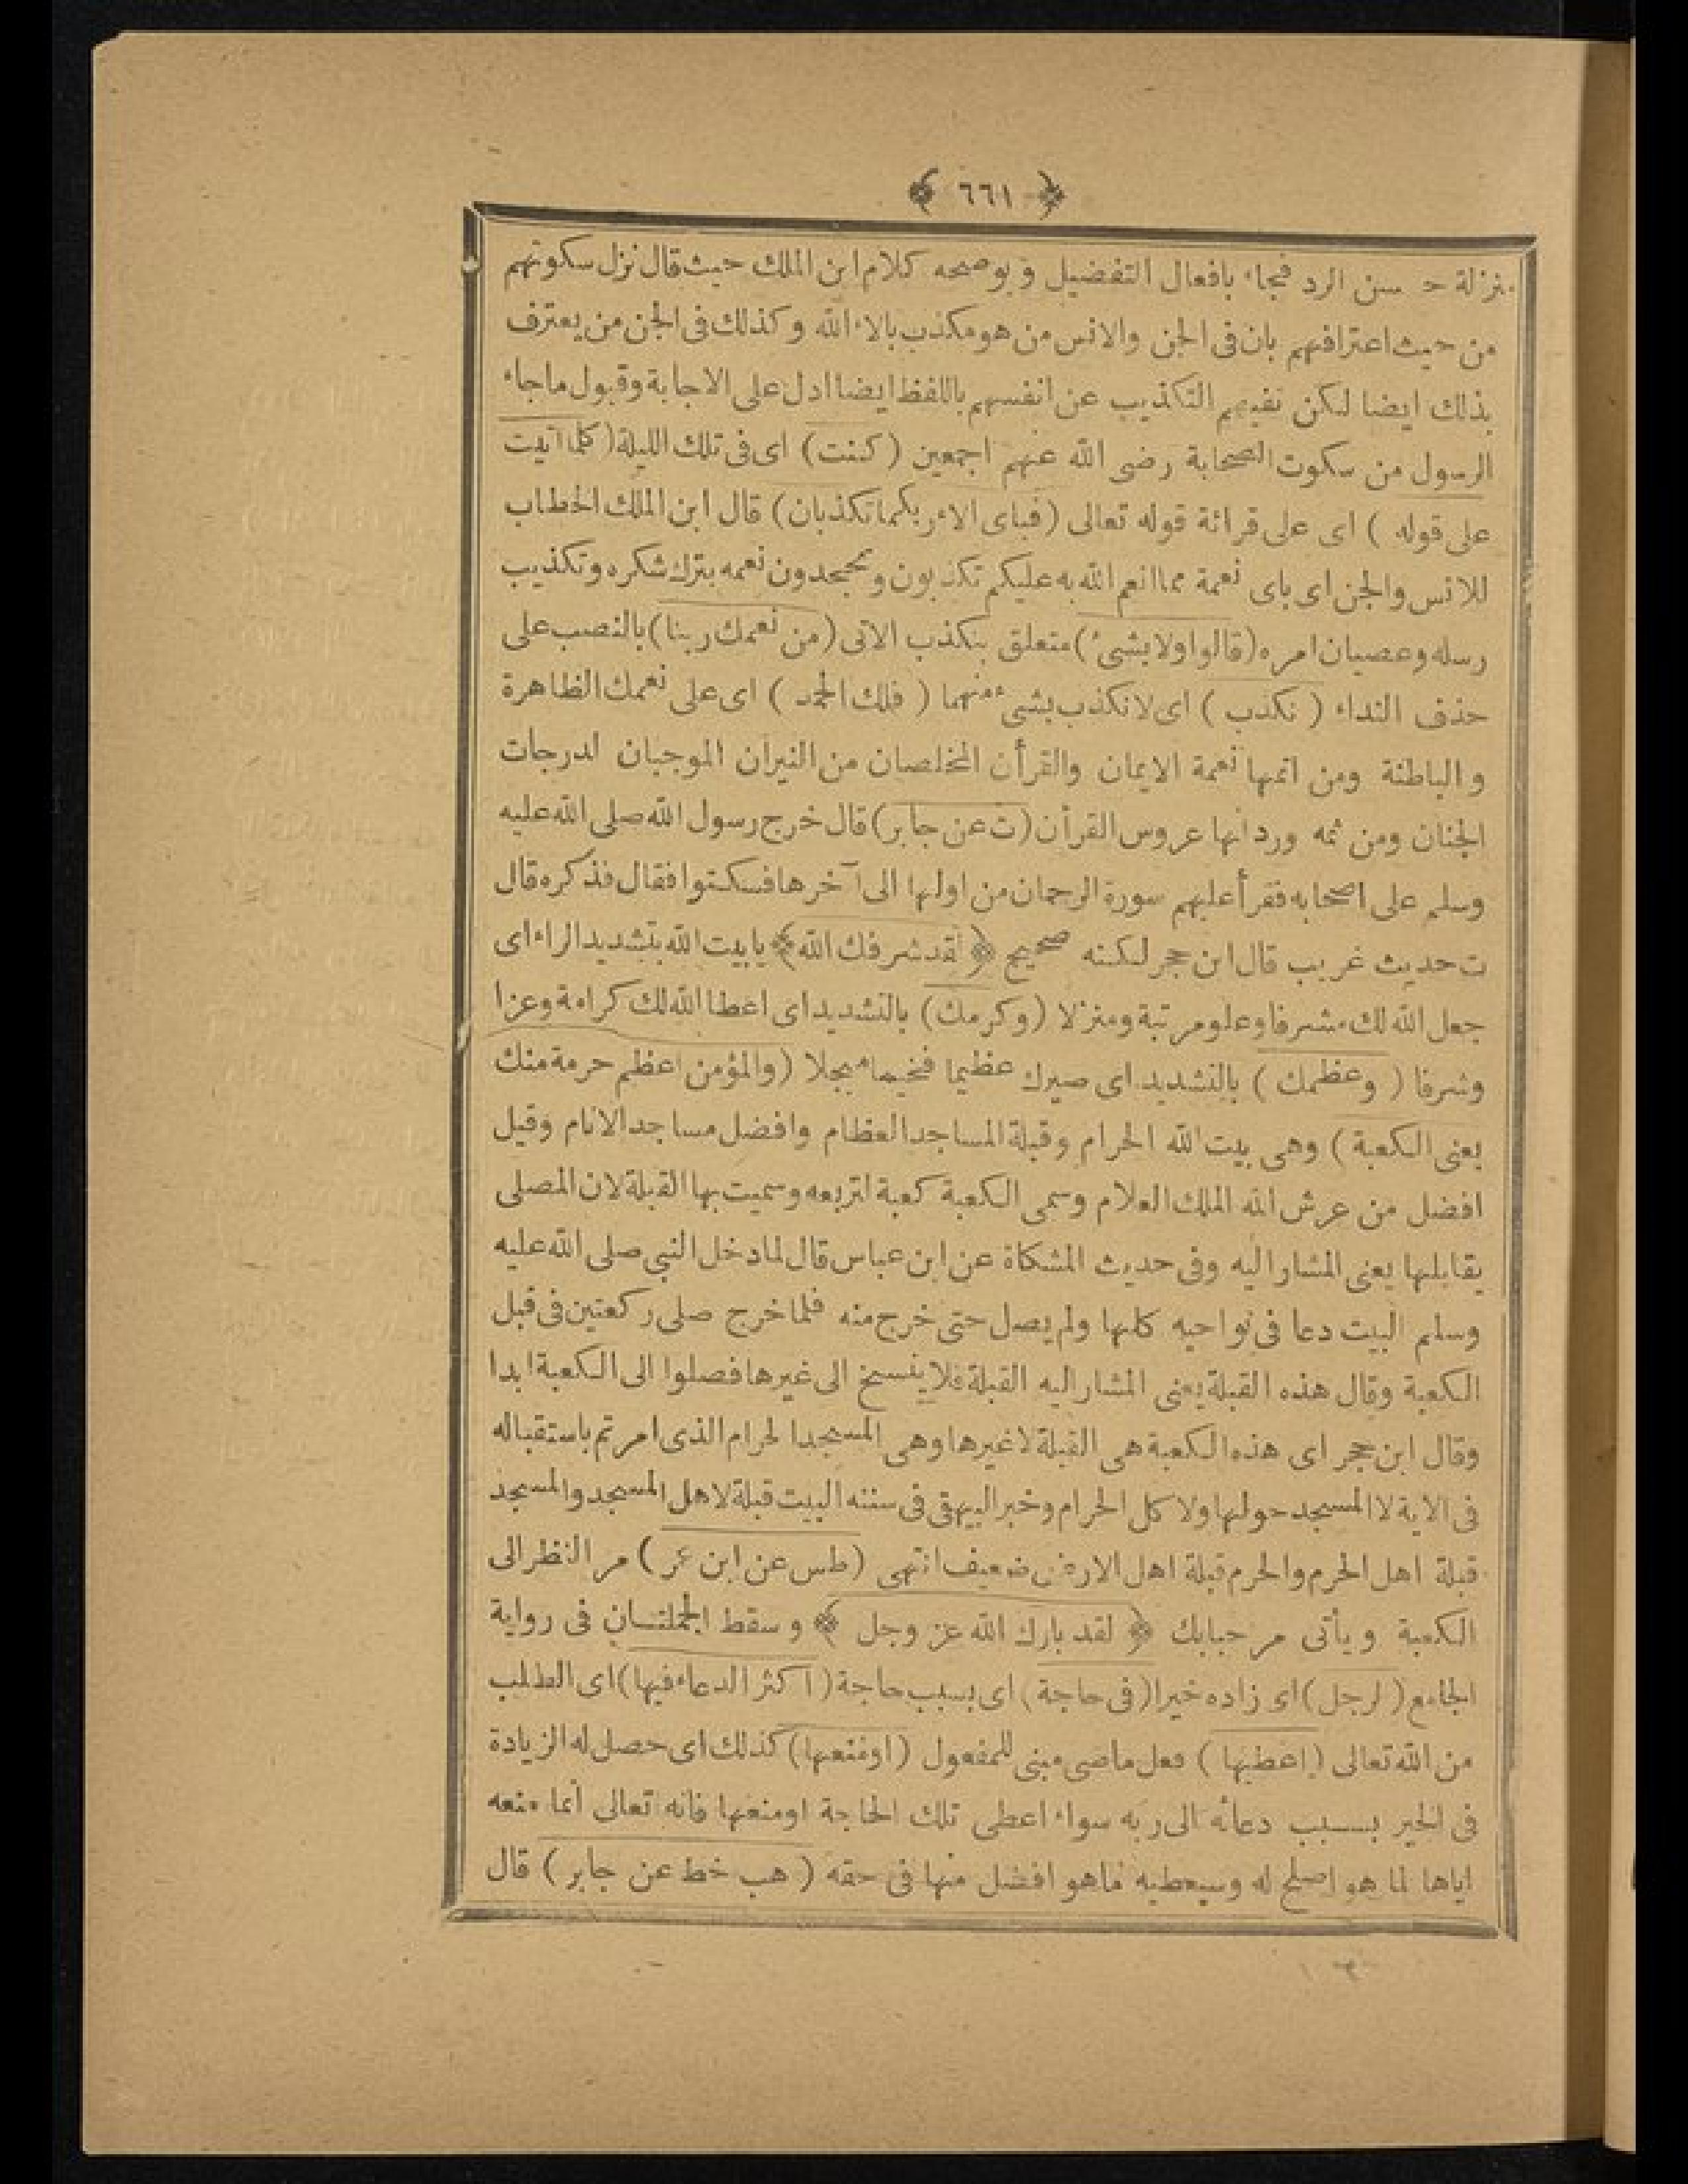 ﴿ ٦٦١ ﴾
منزلة حسن الرد فجاء بافعال التفضيل ويوضحه كلام ابن الملك حيث قال نزل سكوتهم
من حيث اعترافهم بان فى الجن والانس من هو مكذب بالاء الله وكذلك فى الجن من يعترف
بذلك ايضا لكن نفيهم التكذيب عن انفسهم باللفظ ايضا ادل على الاجابة وقبول ماجاء
الرسول من سكوت الصحابة رضى الله عنهم اجمعين (كنت) اى فى تلك الليلة (كلما اتيت
على قوله ) اى على قرائة قوله تعالى (فباى الاء ربكما تكذبان) قال ابن الملك الخطاب
للانس والجن اى باى نعمة مما انعم الله به عليكم تكذبون وتجحدون نعمه بترك شكره وتكذيب
رسله وعصيان امره (قالوا ولا بشئ) متعلق بنكذب الاتى (من نعمك ربنا) بالنصب على
حذف النداء ( نكذب ) اى لانكذب بشئ منهما ( فلك الحمد ) اى على نعمك الظاهرة
والباطنة ومن اتمها نعمة الايمان والقرأن المخلصان من النيران الموجبان لدرجات
الجنان ومن ثمه ورد انها عروس القرأن (ت عن جابر) قال خرج رسول الله صلى الله عليه
وسلم على اصحابه فقرأ عليهم سورة الرحمان من اولها الى آخرها فسكتوا فقال فذكره قال
ت حديث غريب قال ابن حجر لكنه صحيح ﴿ لقد شرفك الله ﴾ يابيت الله بتشديد الراء اى
جعل الله لك مشرفا وعلو مرتبة ومنزلا (وكرمك) بالتشديد اى اعطا الله لك كرامة وعزا
وشرفا ( وعظمك ) بالتشديد اى صيرك عظيما فخيما مبجلا (والمؤمن اعظم حرمة منك
يعنى الكعبة ) وهى بيت الله الحرام وقبلة المساجد العظام وافضل مساجد الانام وقيل
افضل من عرش الله الملك العلام وسمى الكعبة كعبة لتربعه وسميت بها القبلة لان المصلى
يقابلها يعنى المشار اليه وفى حديث المشكاة عن ابن عباس قال لما دخل النبى صلى الله عليه
وسلم البيت دعا فى نواحيه كلها ولم يصل حتى خرج منه فلما خرج صلى ركعتين فى قبل
الكعبة وقال هذه القبلة يعنى المشار اليه القبلة فلا ينسخ الى غيرها فصلوا الى الكعبة ابدا
وقال ابن حجر اى هذه الكعبة هى القبلة لا غيرها وهى المسجد الحرام الذى امرتم باستقباله
فى الاية لا المسجد حولها ولا كل الحرام وخبر البيهقى فى سننه البيت قبلة لاهل المسجد والمسجد
قبلة اهل الحرم والحرم قبلة اهل الارض ضعيف انتهى (طس عن ابن عمر) مر النظر الى
الكعبة ويأتى مرحبا بك ﴿ لقد بارك الله عز وجل ﴾ وسقط الجملتان فى رواية
الجامع (لرجل) اى زاده خيرا (فى حاجة) اى بسبب حاجة (اكثر الدعاء فيها) اى الطلب
من الله تعالى (اعطيها) فعل ماضى مبنى للمفعول (اومنعها) كذلك اى حصل له الزيادة
فى الخير بسبب دعائه الى ربه سواء اعطى تلك الحاجة اومنعها فانه تعالى انما منعه
اياها لما هو اصلح له وسيعطيه ماهو افضل منها فى حقه ( هب خط عن جابر) قال